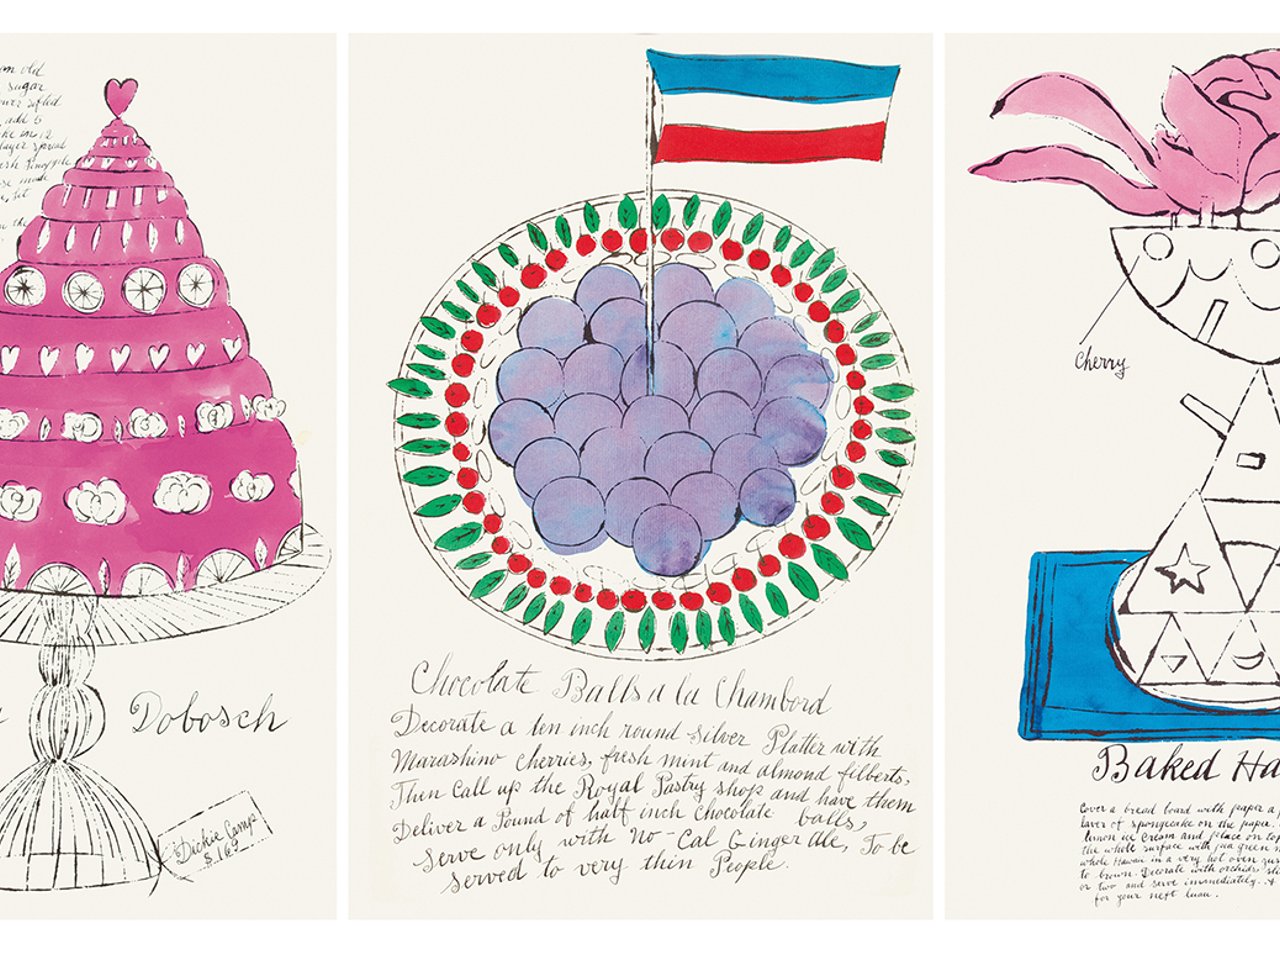 om old
sugar
over sifted
add 6
ke in 12
layer spread
esh Pineapple
se made
Dobosch
Dickie Camp
$1.69
Chocolate Balls a la Chambord
Decorate a ten inch round silver Platter with
Marashino cherries, fresh mint and almond filberts,
Then Call up the Royal Pastry shop and have them
Deliver a Pound of half inch Chocolate balls,
serve only with No-Cal Ginger Ale, To be
served to very thin People.
Cherry
Baked Ha
Cover a bread board with paper a
layer of spongecake on the paper.
lemon ice cream and place on top
the whole surface with pea green m
whole Hawaii in a very hot oven jus
to brown. Decorate with orchids sli
or two and serve immediately. A
for your next luau.